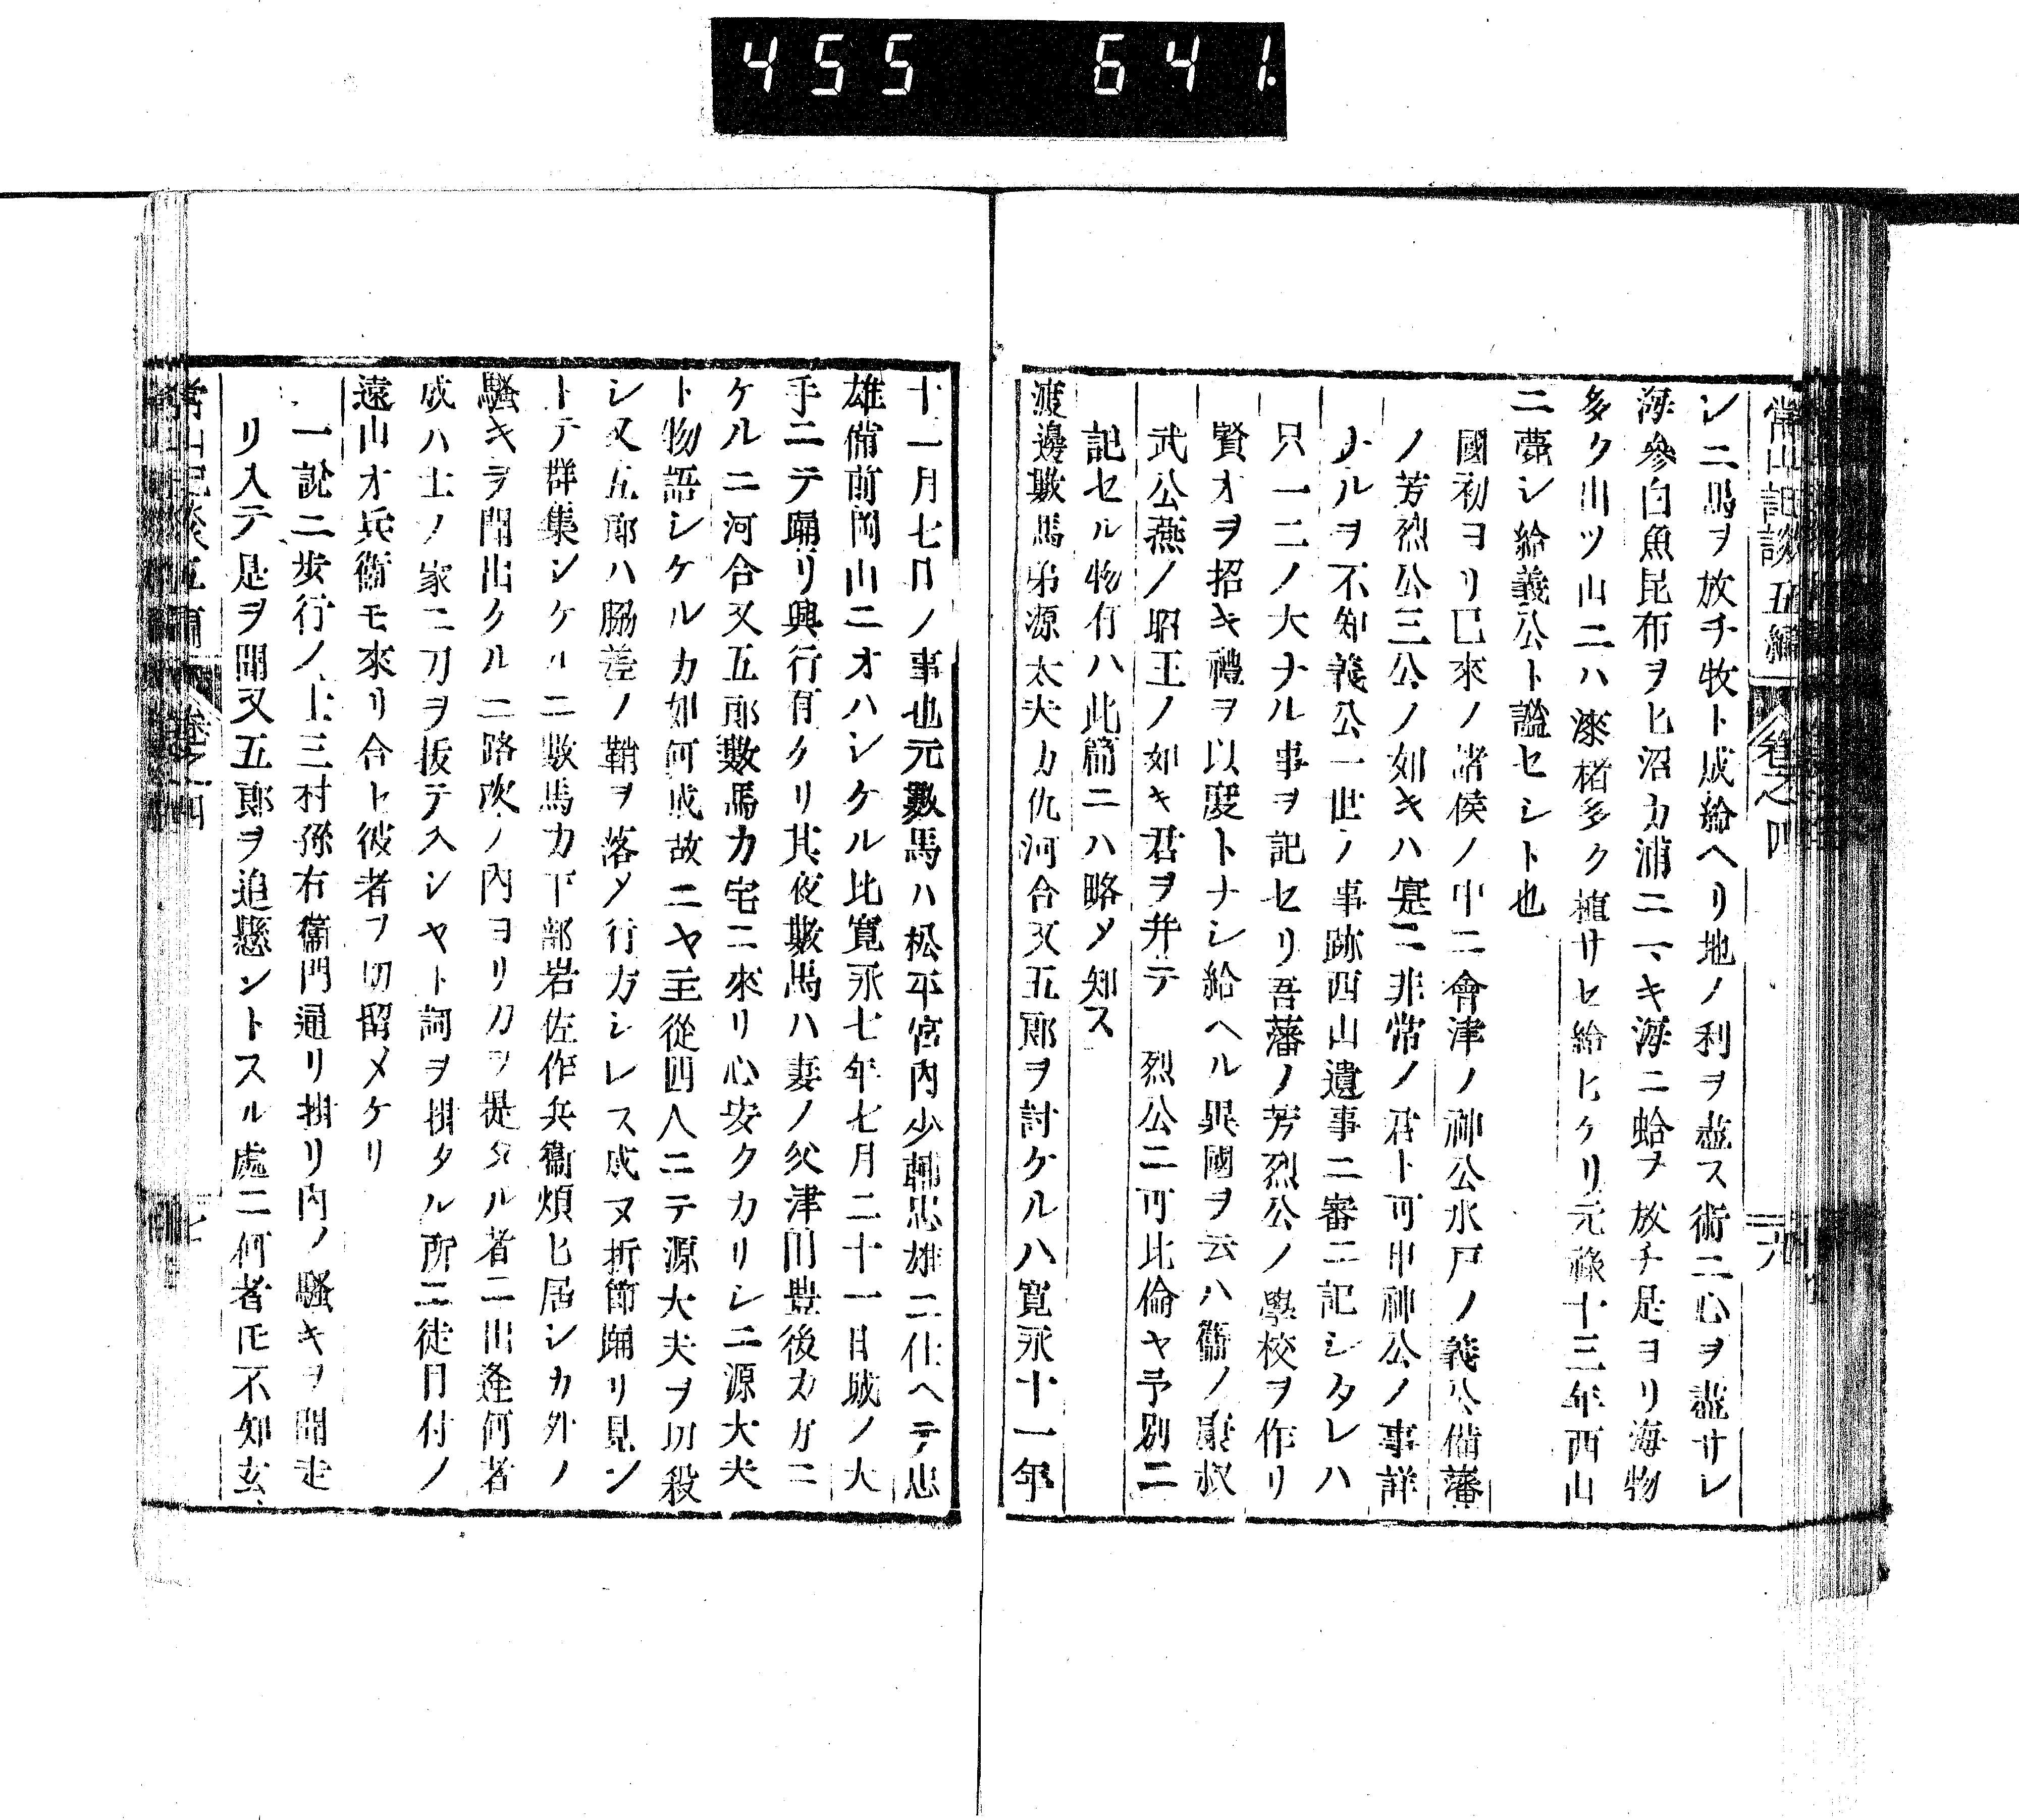 455 641.
常山記談五編 卷之四 十九
シニ馬ヲ放チ牧ト成給ヘリ地ノ利ヲ盡ス術ニ心ヲ盡サレ
海參白魚昆布ヲヒ沼カ浦ニマキ海ニ蛤ヲ放チ是ヨリ海物
多ク出ツ山ニハ漆楮多ク植サセ給ヒケリ元祿十三年西山
ニ薨シ給義公ト謚セシト也
國初ヨリ已來ノ諸侯ノ中ニ會津ノ神公水戸ノ義公備藩
ノ芳烈公三公ノ如キハ寔ニ非常ノ君ト可申神公ノ事詳
ナルヲ不知義公一世ノ事跡西山遺事ニ審ニ記シタレハ
只一二ノ大ナル事ヲ記セリ吾藩ノ芳烈公ノ學校ヲ作リ
賢才ヲ招キ禮ヲ以變トナシ給ヘル異國ヲ云ハ衞ノ康叔
武公燕ノ昭王ノ如キ君ヲ并テ 烈公ニ可比倫ヤ予別ニ
記セル物有ハ此篇ニハ略メ知ス
渡邊數馬弟源太夫カ仇河合又五郎ヲ討ケルハ寛永十一年
十一月七日ノ事也元數馬ハ松平宮内少輔忠雄ニ仕ヘテ忠
雄備前岡山ニオハシケル比寛永七年七月二十一日城ノ大
手ニテ踊リ興行有クリ其夜數馬ハ妻ノ父津田豊後カガニ
ケルニ河合又五郎數馬カ宅ニ來リ心安クカリシニ源大夫
ト物語シケルカ如何成故ニヤ主從四人ニテ源大夫ヲ切殺
シ又五郎ハ脇差ノ鞘ヲ落メ行方シレス成ヌ折節踊リ見ン
トテ群集シケルニ數馬カ下部岩佐作兵衞煩ヒ居シカ外ノ
騷キヲ聞出クルニ路次ノ内ヨリ刀ヲ提タル者ニ出逢何者
成ハ士ノ家ニ刀ヲ抜テ入シヤト詞ヲ掛タル所ニ徒目付ノ
遠山才兵衞モ來リ合ト彼者ヲ切留メケリ
一訟ニ歩行ノ士三村孫右衞門通リ掛リ内ノ騷キヲ聞走
リ入テ是ヲ聞又五郎ヲ追懸ントスル處ニ何者圧不知玄
常山記談五編 卷之四